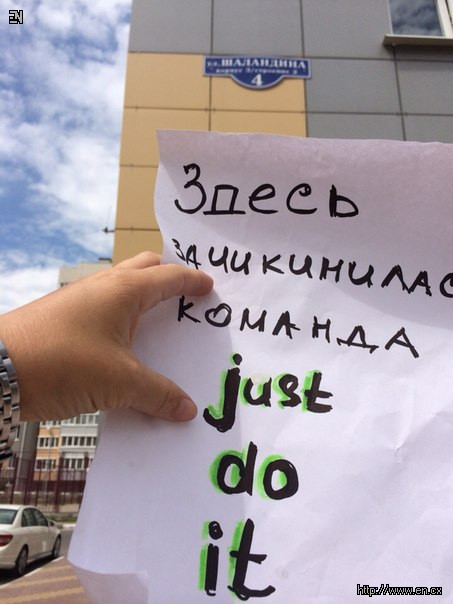 EN
ул. ШАЛАНДИНА
4
Здесь
ЗАЧИКИНИЛАС
КОМАНДА
just
do
it
http://www.en.cx